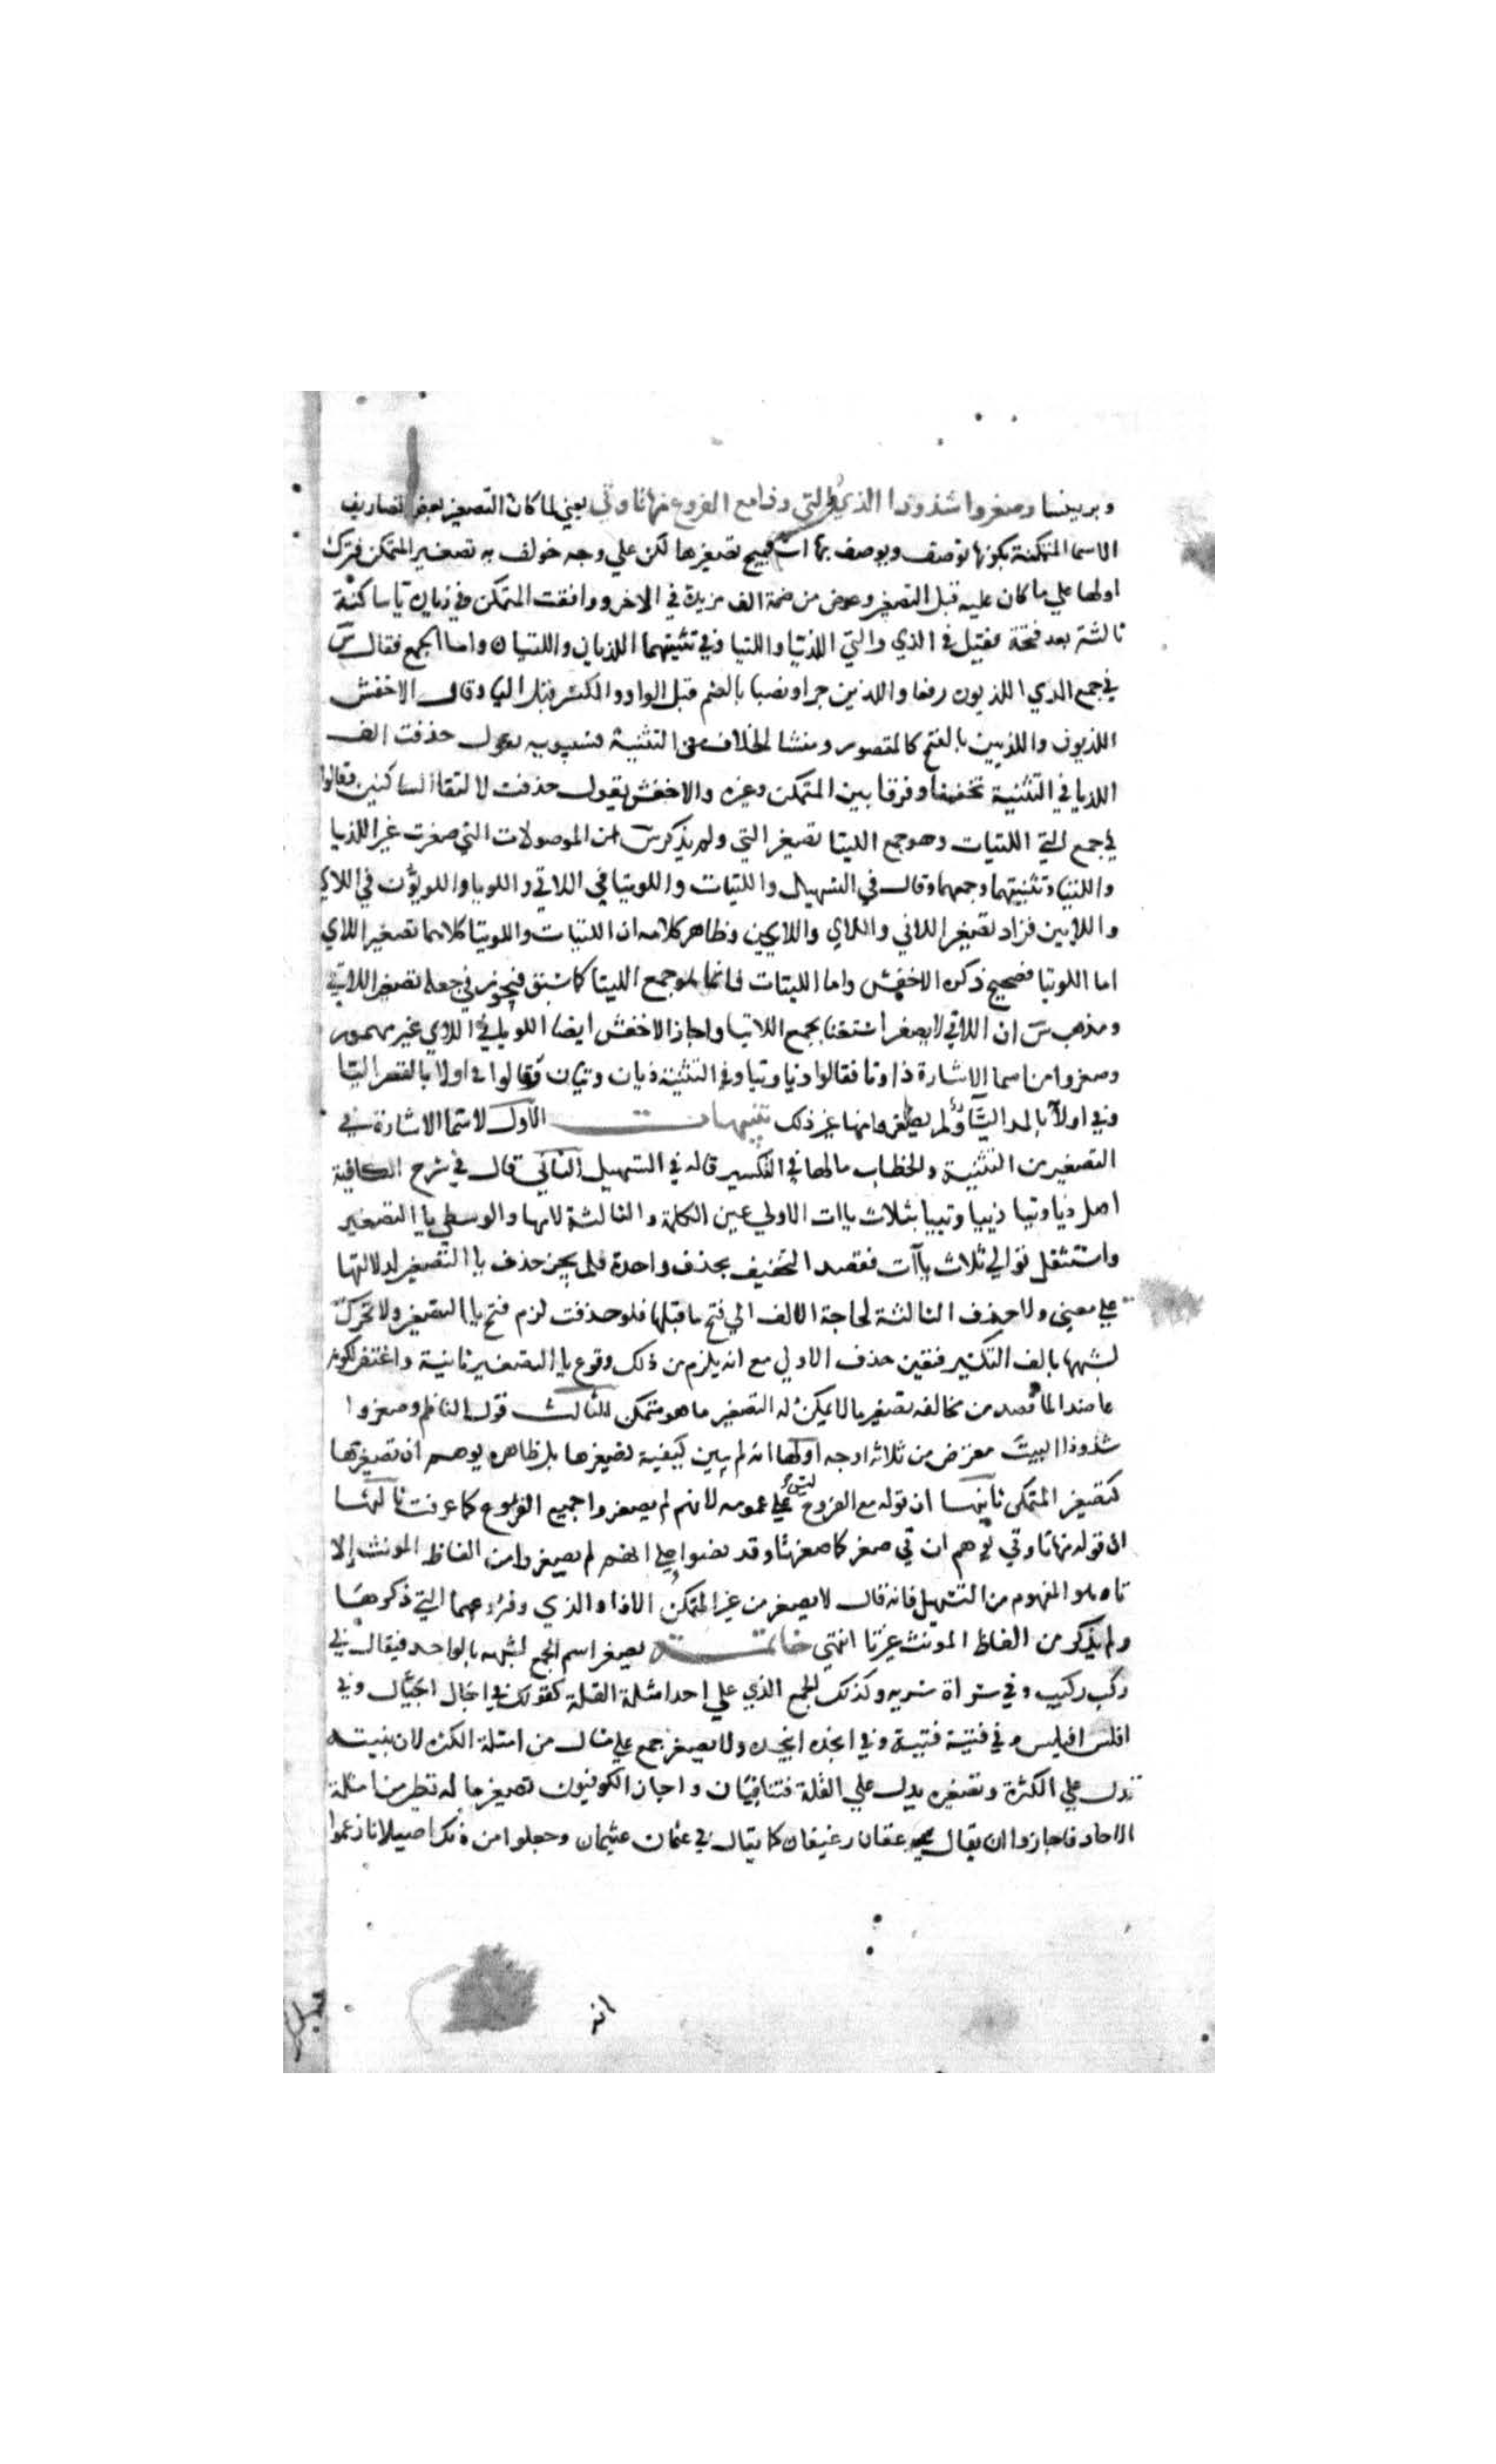 وبريهيما وصغروا شذوذا الذي والتي وذا مع الفروع منها تا وتي يعني لما كان التصغير بعض تصاريف
الاسما المتمكنة بكونها توصف ويوصف بها تصغيرها لكن علي وجه خولف به تصغير المتمكن فترك
اولها علي ما كان عليه قبل التصغير وعوض من ضمة الف مزيدة في الاخر ووافقت المتمكن في زيادة يا ساكنة
ثالثة بعد فتحة فقيل في الذي والتي اللذيا واللتيا وفي تثنيتهما اللذيان واللتيان واما الجمع فقال س
في جمع الذي اللذيون رفعا واللذيين جرا ونصبا بالضم قبل الواو والكسر قبل اليا وقال الاخفش
اللذيون واللذيين بالفتح كالمقصور ومنشا الخلاف من التثنية فسيبويه يقول حذفت الف
اللذيا في التثنية تخفيفا وفرقا بين المتمكن وغيره والاخفش يقول حذفت لالتقا الساكنين وقالوا
في جمع التي اللتيات وهو جمع اللتيا تصغير التي ولم يذكر س من الموصولات التي صغرت غير اللذيا
واللتيا وتثنيتهما وجمعهما وقال في التسهيل واللتيات واللويتا في اللاتي واللويا واللويون في اللاي
واللايين فزاد تصغير اللاتي واللاي واللايين وظاهر كلامه ان اللتيات واللويتا كلاهما تصغير اللاي
اما اللويتا فصحيح ذكره الاخفش واما اللتيات فانما هو جمع اللتيا كما سبق فتجوز في جعله تصغير اللاتي
ومذهب س ان اللاتي لا يصغر استغنا بجمع اللتيا واجاز الاخفش ايضا اللويا في اللاي غير مهموز
وصغروا من اسما الاشارة ذا وتا فقالوا ذيا وتيا وفي التثنية ذيان وتيان وقالوا في اولا بالقصر اليا
وفي اولآ بالمد اليآ ولم يصغروا منها غير ذلك تنبيهات الاول لاسما الاشارة في
التصغير من التثنية والخطاب ما لها في التكسير قاله في التسهيل الثاني قال في شرح الكافية
اصل ذيا وتيا ذييا وتييا بثلاث ياات الاولي عين الكلمة والثالثة لامها والوسطي يا التصغير
واستثقل توالي ثلاث ياآت فقصد التخفيف بحذف واحدة فلم يجز حذف يا التصغير لدلالتها
علي معني ولا حذف الثالثة لحاجة الالف الي فتح ما قبلها فلو حذفت لزم فتح يا التصغير ولا تحرك
لشبهها بالف التكسير فتعين حذف الاولي مع انه يلزم من ذلك وقوع يا التصغير ثانية واغتفر لكونه
عاضدا لما قصد من مخالفة تصغير ما لا يمكن له التصغير ما هو متمكن الثالث قول الناظم وصغروا
شذوذا البيت معترض من ثلاثة اوجه اولها انه لم يبين كيفية تصغيرها بل ظاهره يوهم ان تصغيرها
كتصغير المتمكن ثانيها ان قوله مع الفروع ليس علي عمومه لانهم لم يصغروا جميع الفروع كما عرفت ثالثها
ان قوله منها تا وتي يوهم ان تي صغر كما صغر تا وقد نصوا علي انهم لم يصغروا من الفاظ المونث إلا
تا وهو المفهوم من التسهيل فانه قال لا يصغر من غير المتمكن الا ذا والذي وفروعهما التي ذكرها
ولم يذكر من الفاظ المونث غير تا انتهي خاتمة يصغر اسم الجمع لشبهه بالواحد فيقال في
ركب ركيب وفي سراة سرية وكذلك الجمع الذي علي احد امثلة القلة كقولك في اجمال اجيمال وفي
افلس افيلس وفي فتية فتيية وفي انجده انيجده ولا يصغر جمع علي مثال من امثلة الكثرة لان بنيته
تدل علي الكثرة وتصغيره يدل علي القلة فتنافيان واجاز الكوفيون تصغير ما له نظير من امثلة
الاحاد فاجازوا ان يقال رغيفان كما يقال في عثمان عثيمان وجعلوا من ذلك اصيلانا زعموا
انه